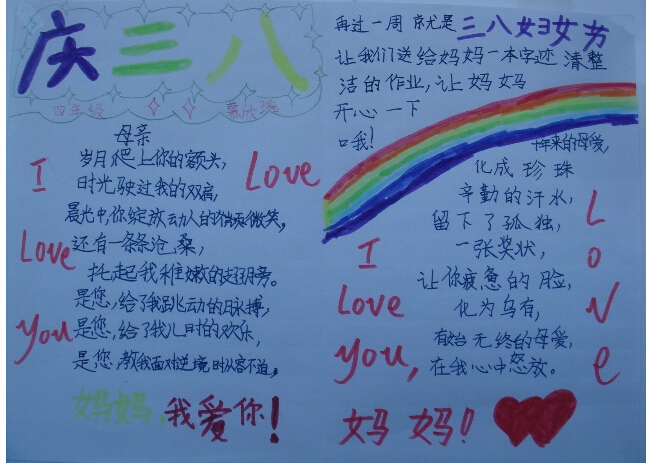 庆三八
四年级
母亲
岁月爬上你的额头，
时光驶过我的双肩，
晨光中，你绽放动人的微笑，
还有一条条沧桑，
托起我稚嫩的翅膀。
是您，给了我跳动的脉搏，
是您，给了我儿时的欢乐，
是您，教我面对逆境时从容不迫，
妈妈，我爱你！
I Love You
Love
再过一周就是三八妇女节
让我们送给妈妈一本字迹清整
洁的作业，让妈妈
开心一下
口我！
十年来的母爱，
化成珍珠
辛勤的汗水，
留下了孤独，
一张奖状，
让你疲惫的脸，
化为乌有，
有始无终的母爱，
在我心中怒放。
I Love you,
Love
妈妈！